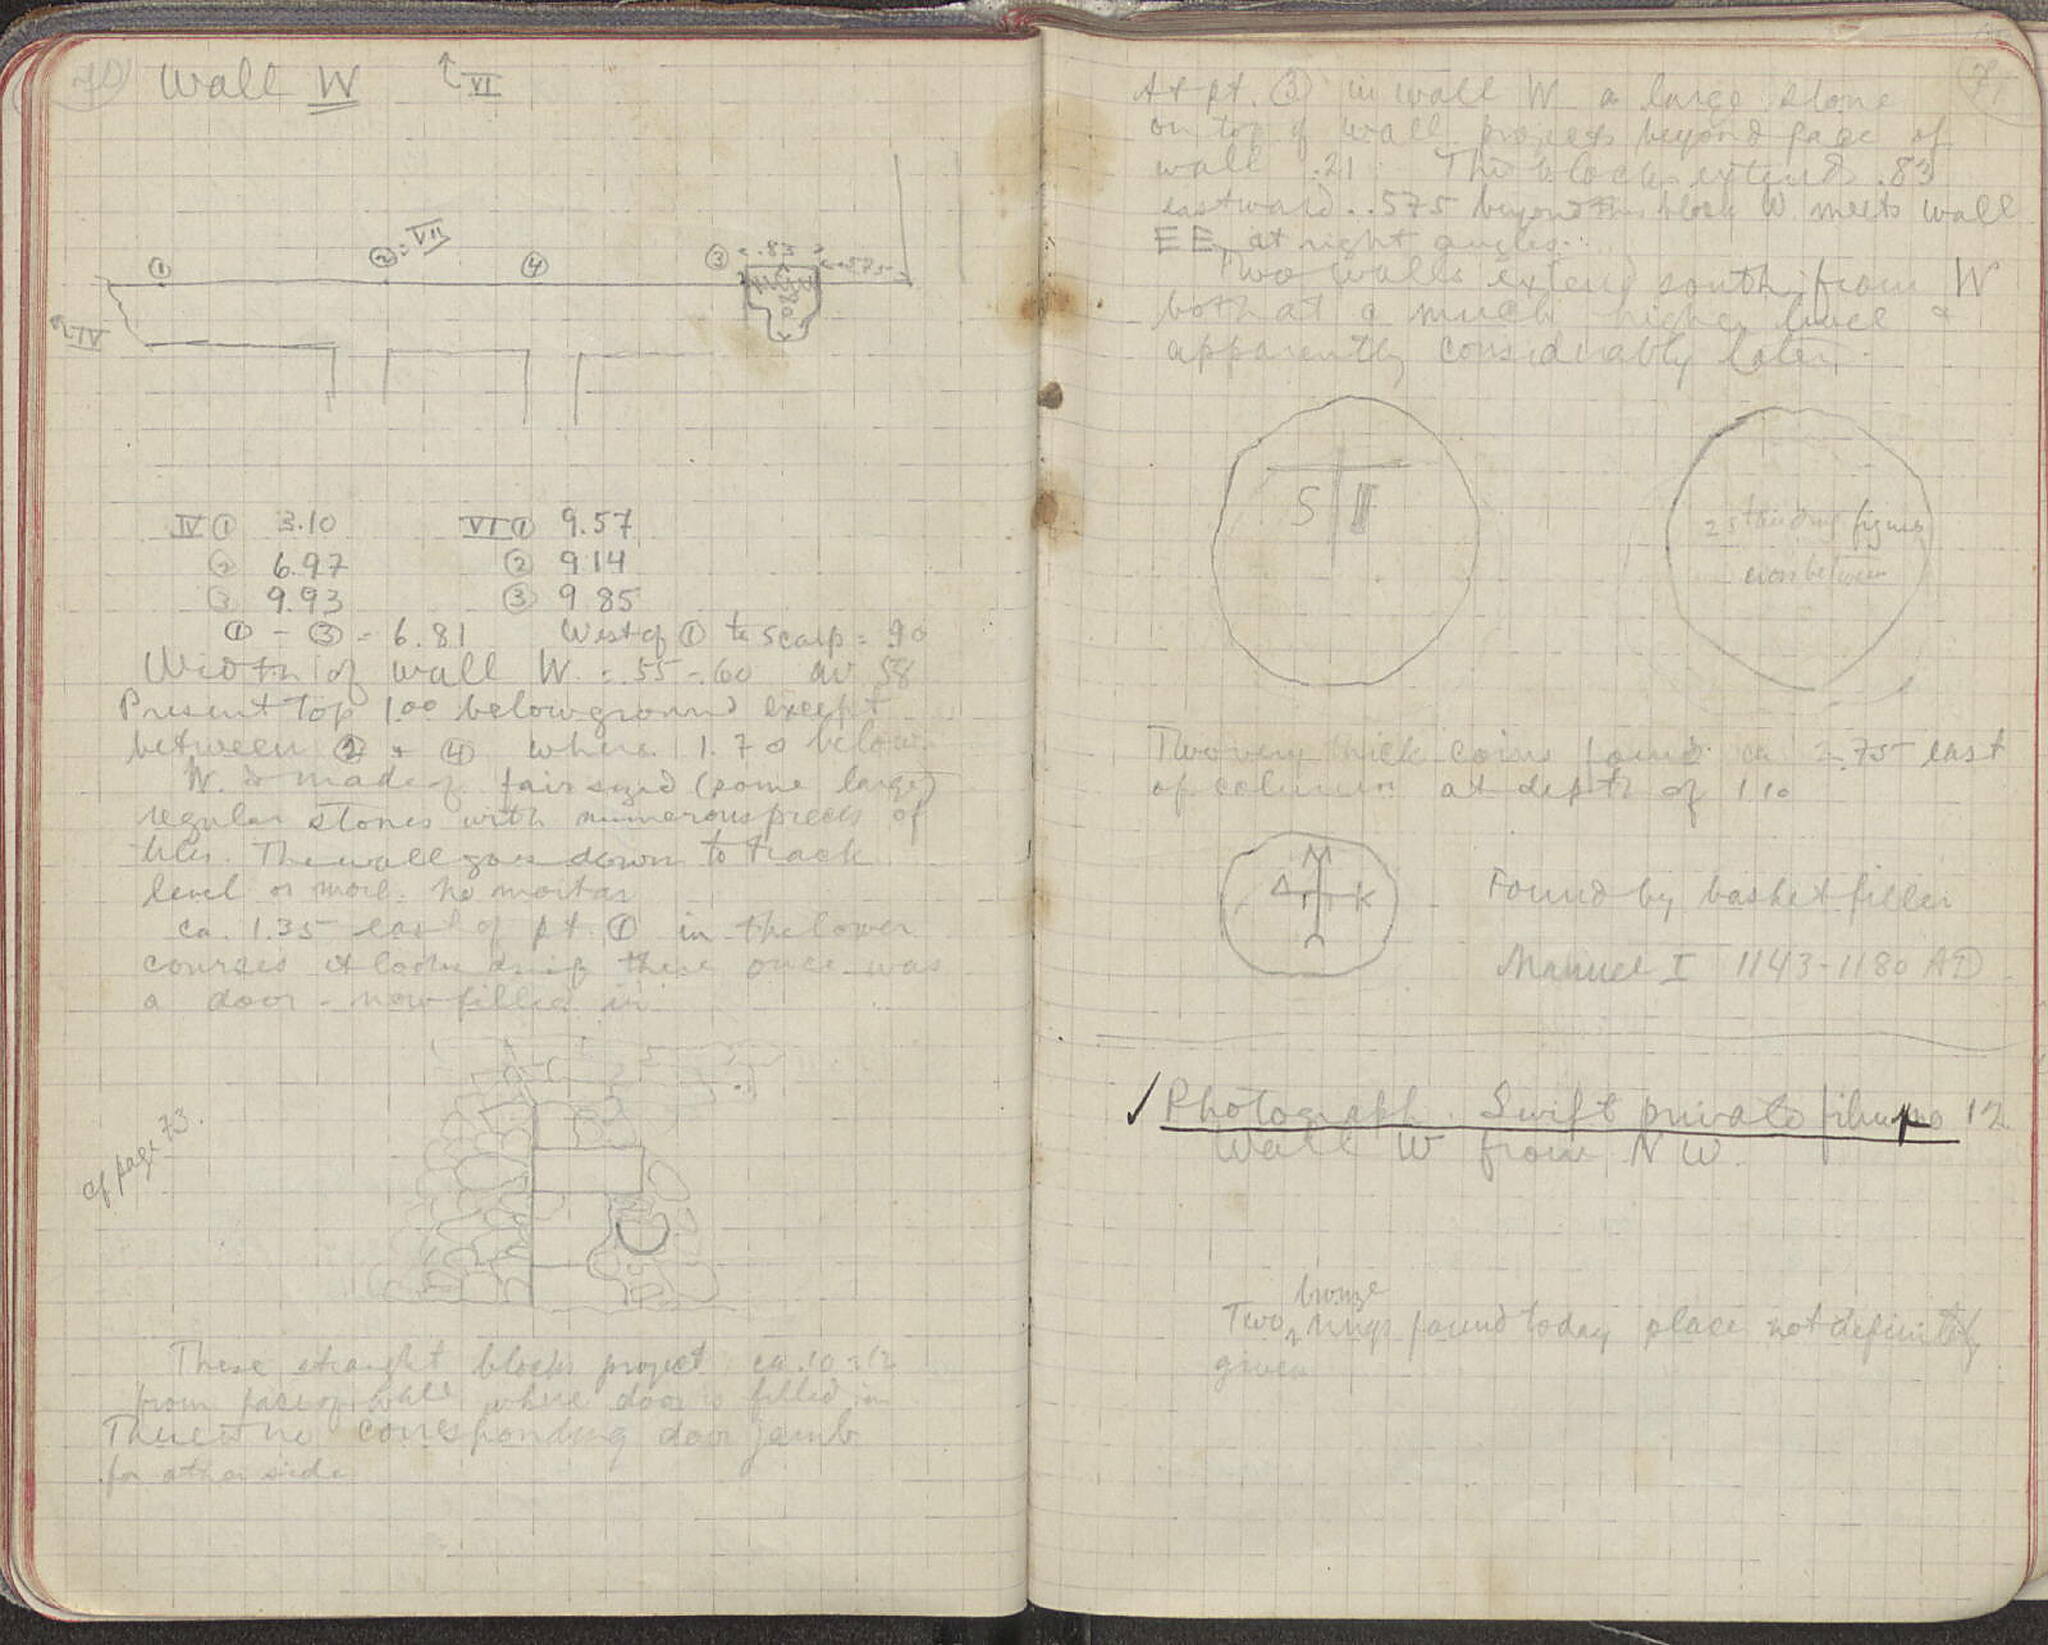 70
Wall W ↑VI
① ②=VII ④ ③ .83 .575
IV
IV ① 3.10 VI ① 9.57
② 6.97 ② 9.14
③ 9.93 ③ 9.85
① - ③ = 6.81 West of ① to scarp = .90
Width of wall W. = .55-.60 av 58
Present top 1.00 below ground except
between ② + ④ where 1.70 below.
W. is made of fair sized (some large)
regular stones with numerous pieces of
tiles. The wall goes down to track
level or more. No mortar
ca. 1.35 east of pt. ① in the lower
courses it looks as if there once was
a door - now filled in
cf page 73.
These straight blocks project ca .10-.12
from face of wall where door is filled in
There is no corresponding door jamb
for other side
71
At pt. ③ in wall W a large stone
on top of wall projects beyond face of
wall .21. This block extends .83
eastward. .575 beyond this block W. meets wall
EE, at right angles.
Two walls extend south from W
both at a much higher level &
apparently considerably later.
S
2 standing figures
cross between
Two very thick coins found ca 2.75 east
of column at depth of 1.10
M
Δ K
Found by basket filler
Manuel I 1143-1180 AD
✓ Photograph. Swift private film no 12
Wall W from NW.
Two bronze rings found today place not definitely
given